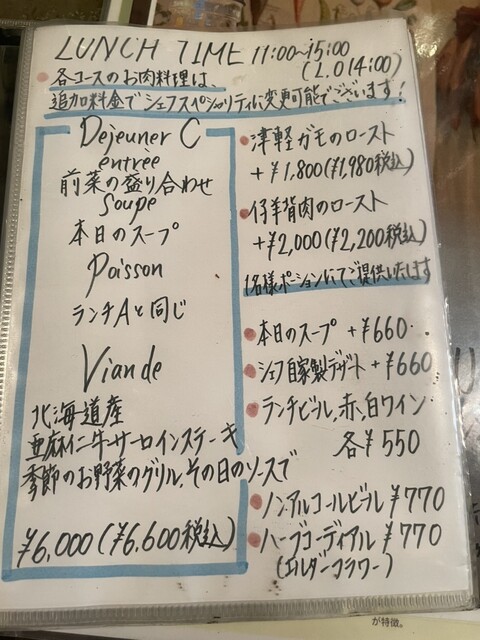 LUNCH TIME 11:00~15:00
(L.O 14:00)
各コースのお肉料理は、
追加料金でシェフスペシャリティに変更可能でございます!
Dejeuner C
entree
前菜の盛り合わせ
Soupe
本日のスープ
Poisson
ランチAと同じ
Viande
北海道産
亜麻仁牛サーロインステーキ
季節のお野菜のグリル、その日のソースで
¥6,000(¥6,600税込)
津軽ガモのロースト
+¥1,800(¥1,980税込)
仔羊背肉のロースト
+¥2,000(¥2,200税込)
1名様ポーションにてご提供いたします
本日のスープ +¥660
シェフ自家製デザート +¥660
ランチビール、赤、白ワイン
各¥550
ノンアルコールビール ¥770
ハーブコーディアル ¥770
(エルダーフラワー)
が特徴。